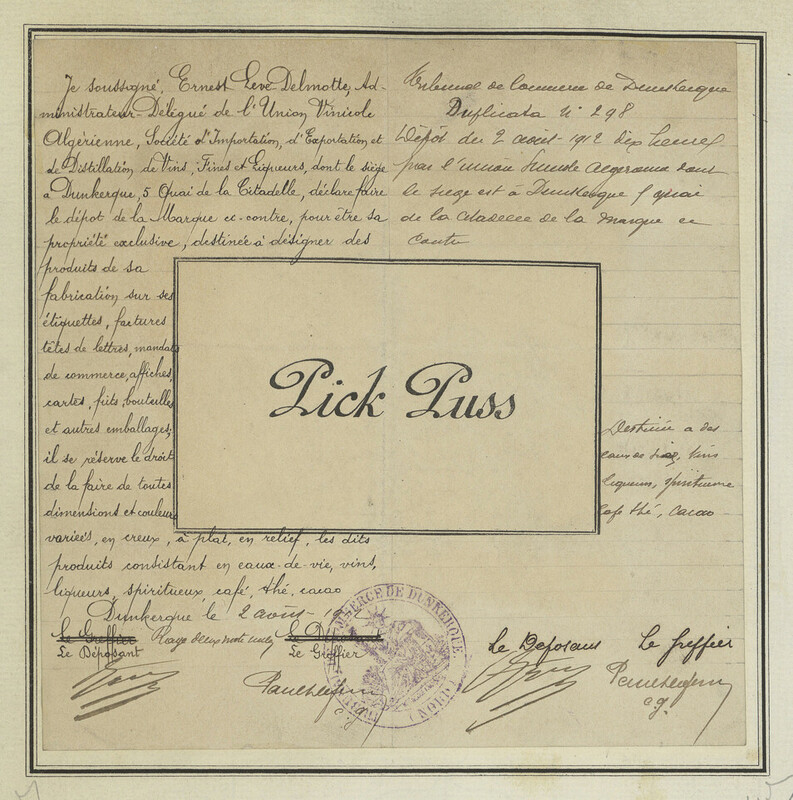 Je soussigné, Ernest Leve Delmotte, Ad-
ministrateur-Délégué de l'Union Vinicole
Algérienne, Société d'Importation, d'Exportation et
de Distillation de Vins, Fines et Liqueurs, dont le siège
a Dunkerque, 5 Quai de la Citadelle, déclare faire
le dépot de la Marque ci-contre, pour être sa
propriété exclusive, destinée à désigner des
produits de sa
fabrication sur ses
étiquettes, factures
têtes de lettres, mandats
de commerce, affiches,
cartes, fûts, bouteilles
et autres emballages;
il se réserve le droit
de la faire de toutes
dimensions et couleurs
variées, en creux, à plat, en relief, les dits
produits consistant en eaux-de-vie, vins,
liqueurs, spiritueux, café, thé, cacao
Dunkerque le 2 août 19
Le Greffier Rayé deux mots nuls Le Déposant
Le Déposant Le Greffier
c.g.
Tribunal de Commerce de Dunkerque
Duplicata N° 298
Dépôt du 2 août 1912 dix heures
par l'union dont
le siege est à Dunkerque 5 quai
de la citadelle de la marque ci
contre
Pick Puss
Destinée a des
eaux de vie, vins
liqueurs, spiritueux
café thé, cacao
Le Déposant Le Greffier
c.g.
COMMERCE DE DUNKERQUE
(NORD)